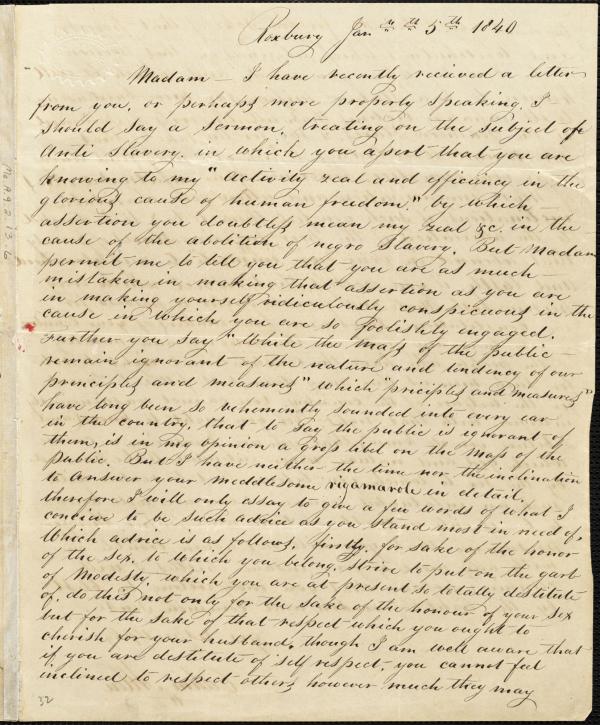 Roxbury Jan y th 5th 1840
Madam — I have recently recieved a letter
from you, or perhaps more properly speaking, I
should say a sermon, treating on the subject of
Anti Slavery, in which you asert that you are
knowing to my "activity zeal and efficiency in the
glorious cause of human freedom." by which
assertion you doubtless mean my zeal &c. in the
cause of the abolition of negro Slavery. But Madam
permit me to tell you that you are as much
mistaken in making that assertion as you are
in making yourself ridiculously conspicuous in the
cause in which you are so foolishly engaged.
Further you say "While the mass of the public —
remain ignorant of the nature and tendency of our
principles and measures" which "priciples and measures"
have long been so vehemently sounded into every ear
in the country, that to say the public is ignorant of
them, is in my opinion a gross libel on the mass of the
public. But I have neither the time nor the inclination
to answer your meddlesome rigamarole in detail,
therefore I will only essay to give a few words of what I
concieve to be such advice as you stand most in need of,
Which advice is as follows. firstly, for sake of the honor
of the sex, to which you belong, strive to put on the garb
of Modesty, which you are at present so totally destitute
of, do this not only for the sake of the honour of your sex
but for the sake of that respect which you ought to
cherish for your husband, though I am well aware that
if you are destitute of self respect, you cannot feel
inclined to respect others, however much they may
32